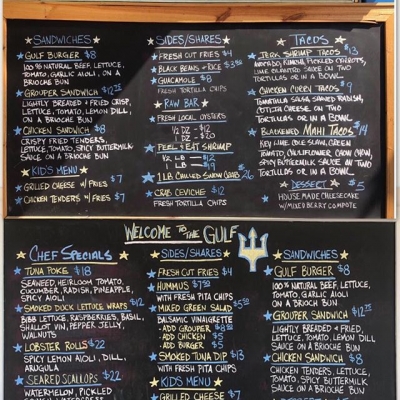 SANDWICHES
GULF BURGER $8
100% NATURAL BEEF, LETTUCE,
TOMATO, GARLIC AIOLI, ON A
BRIOCHE BUN
GROUPER SANDWICH $12.75
LIGHTLY BREADED + FRIED CRISP,
LETTUCE, TOMATO, LEMON DILL,
ON A BRIOCHE BUN
CHICKEN SANDWICH $8
CRISPY FRIED TENDERS,
LETTUCE, TOMATO, SPICY BUTTERMILK
SAUCE ON A BRIOCHE BUN
KID'S MENU
GRILLED CHEESE W/ FRIES $7
CHICKEN TENDERS W/ FRIES $7
SIDES/SHARES
FRESH CUT FRIES $4
BLACK BEANS + RICE $3.50
GUACAMOLE $8
FRESH TORTILLA CHIPS
RAW BAR
FRESH LOCAL OYSTERS
1/2 DZ - $12
DZ - $20
PEEL + EAT SHRIMP
1/2 LB - $12
1 LB - $19
1 LB CHILLED SNOW CRAB 26
CRAB CEVICHE $12
FRESH TORTILLA CHIPS
TACOS
JERK SHRIMP TACOS $13
AVOCADO, KIMCHI, PICKLED CARROTS,
LIME CILANTRO SAUCE ON TWO
TORTILLAS OR IN A BOWL
CHICKEN CURRY TACOS $9
TOMATILLO SALSA, SHAVED RADISH,
COTIJA CHEESE, ON TWO
TORTILLAS OR IN A BOWL
BLACKENED MAHI TACOS $14
KEY LIME COLE SLAW, GREEN
TOMATO, CAULIFLOWER CHOW CHOW,
SPICY BUTTERMILK SAUCE ON TWO
TORTILLAS OR IN A BOWL
DESSERT $5
HOUSE MADE CHEESECAKE
W/ MIXED BERRY COMPOTE
WELCOME TO THE GULF
CHEF SPECIALS
TUNA POKE $18
SEAWEED, HEIRLOOM TOMATO,
CUCUMBER, RADISH, PINEAPPLE,
SPICY AIOLI
SMOKED DUCK LETTUCE WRAPS $12
BIBB LETTUCE, RASPBERRIES, BASIL,
SHALLOT VIN, PEPPER JELLY,
WALNUTS
LOBSTER ROLLS $22
SPICY LEMON AIOLI, DILL,
ARUGULA
SEARED SCALLOPS $22
WATERMELON, PICKLED
SIDES/SHARES
FRESH CUT FRIES $4
HUMMUS $7.50
WITH FRESH PITA CHIPS
MIXED GREEN SALAD $5.50
BALSAMIC VINAIGRETTE
- ADD GROUPER $8.50
- ADD CHICKEN $5
- ADD BURGER $5
SMOKED TUNA DIP $13
WITH FRESH PITA CHIPS
KID'S MENU
GRILLED CHEESE $7
SANDWICHES
GULF BURGER $8
100% NATURAL BEEF, LETTUCE,
TOMATO, GARLIC AIOLI
ON A BRIOCH BUN
GROUPER SANDWICH $12.75
LIGHTLY BREADED + FRIED,
LETTUCE, TOMATO, LEMON DILL
SAUCE ON A BRIOCH BUN
CHICKEN SANDWICH $8
CHICKEN TENDERS, LETTUCE,
TOMATO, SPICY BUTTERMILK
SAUCE ON A BRIOCH BUN